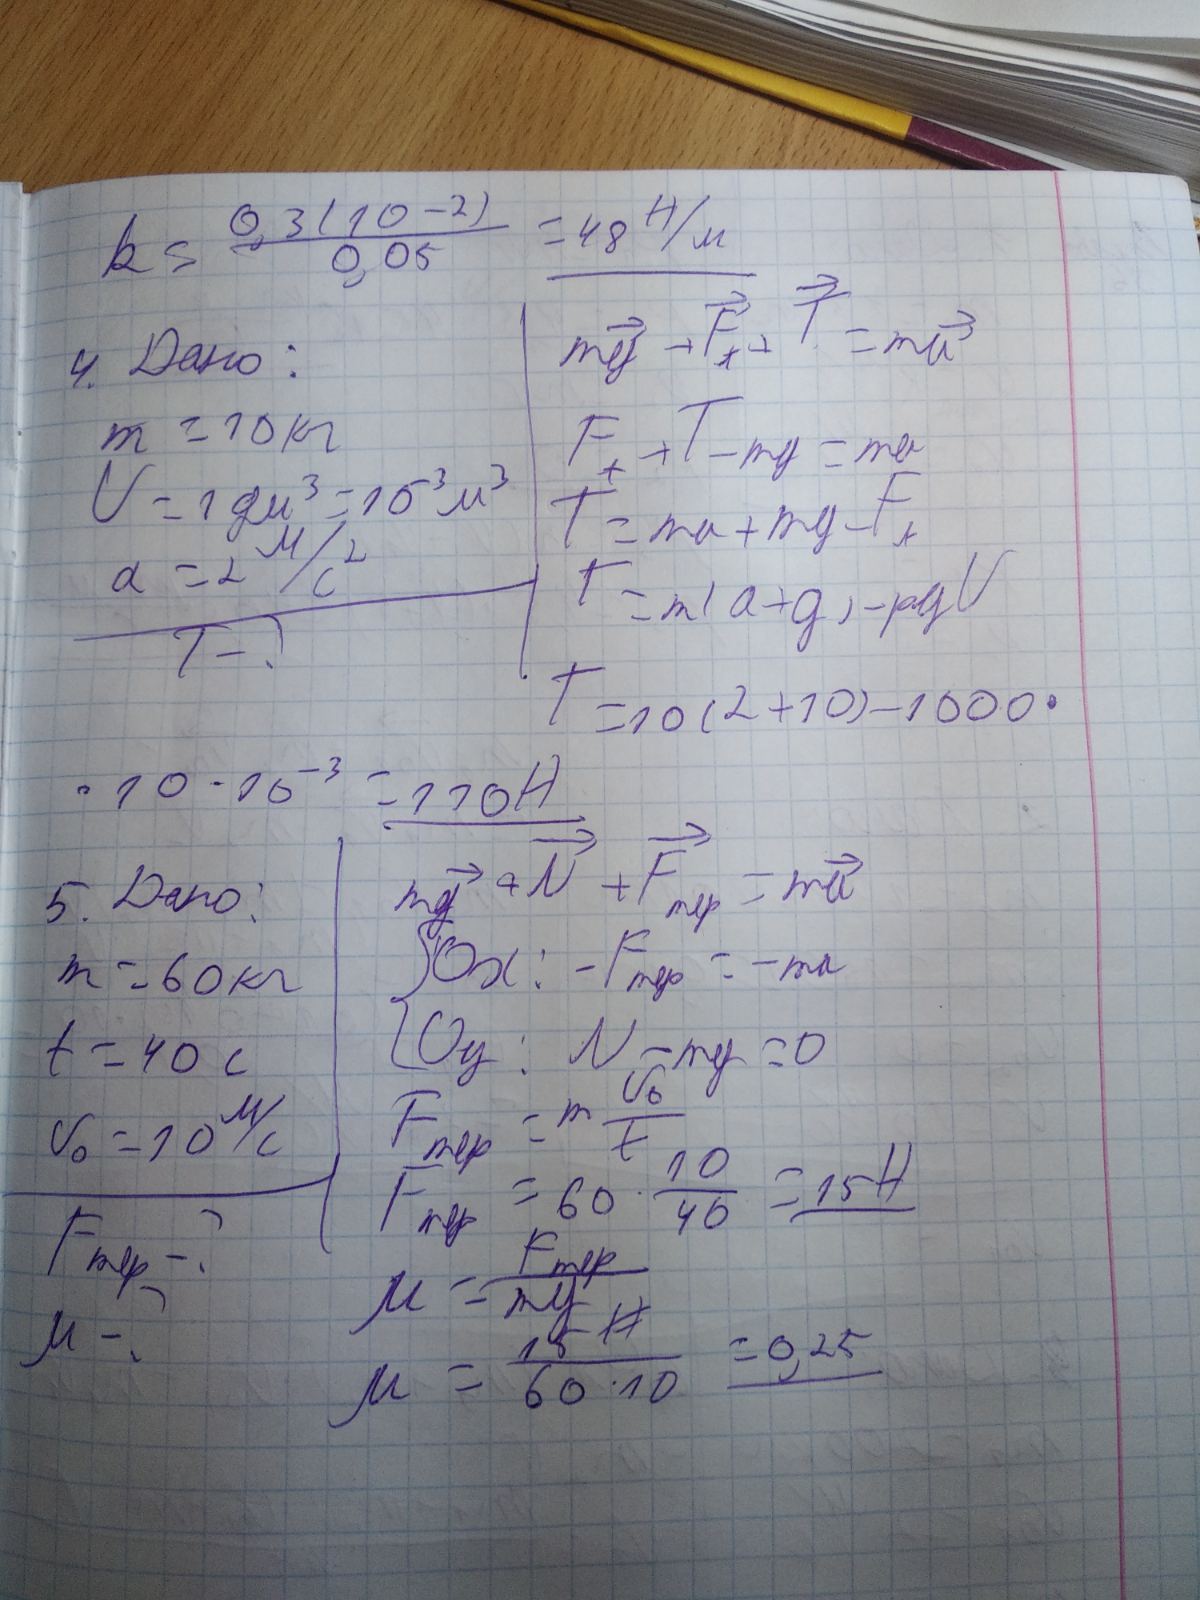 k = 0,3(10-2) / 0,05 = 48 Н/м
4. Дано:
m = 10 кг
V = 1 дм³ = 10⁻³ м³
a = 2 м/с²
T - ?
mg⃗ + F⃗_A + T⃗ = ma⃗
F_A + T - mg = ma
T = ma + mg - F_A
T = m(a+g) - ρgV
T = 10(2+10) - 1000 ·
· 10 · 10⁻³ = 110 Н
5. Дано:
m = 60 кг
t = 40 с
v₀ = 10 м/с
Fтр - ?
μ - ?
mg⃗ + N⃗ + F⃗тр = ma⃗
{ Ox: -Fтр = -ma
Oy: N - mg = 0
Fтр = m v₀ / t
Fтр = 60 · 10 / 40 = 15 Н
μ = Fтр / mg
μ = 15 Н / 60 · 10 = 0,25